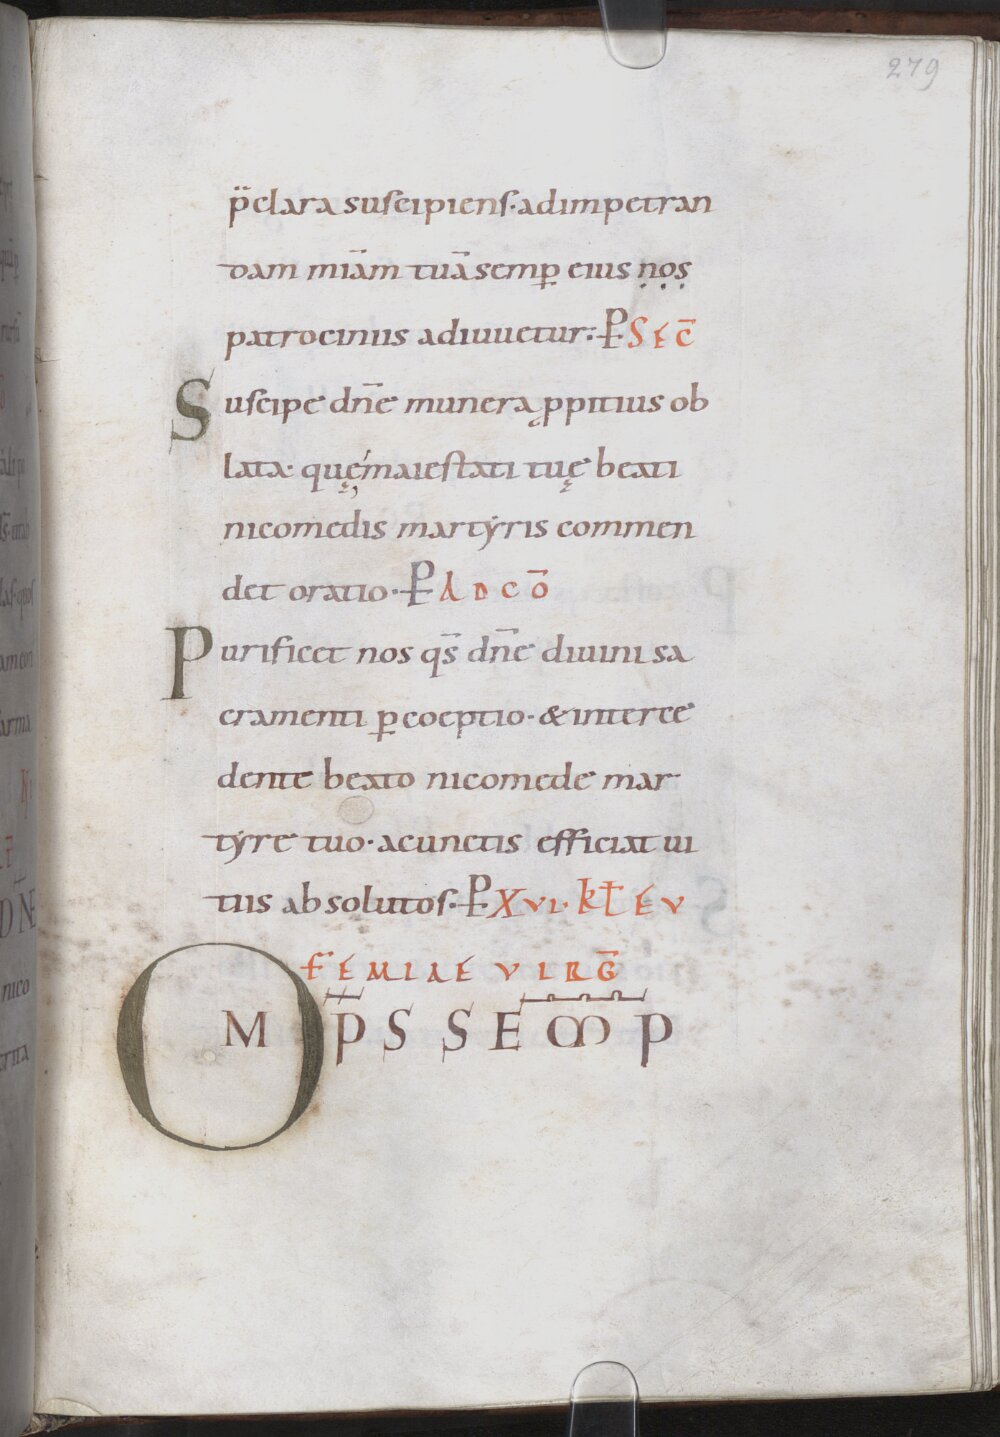 279
p̈clara suscipiens·adimpetran
dam miām tuā semꝑ eius ṇọṣ
patrociniis adiuuetur·: P SEC̄
Suscipe dn̄e munera ꝓpitius ob
lata· quę maiestati tuę beati
nicomedis martẏris commen
det oratio· P ADCŌ
Purificet nos qs̄ dn̄e diuini sa
cramenti ꝑcoeptio· &interce
dente beato nicomede mar
tẏre tuo· acunctis efficiat ui
tiis absolutos· P XVI· KL̄ EV
FEMIAE VIRḠ
OMP̄S SEMP̄